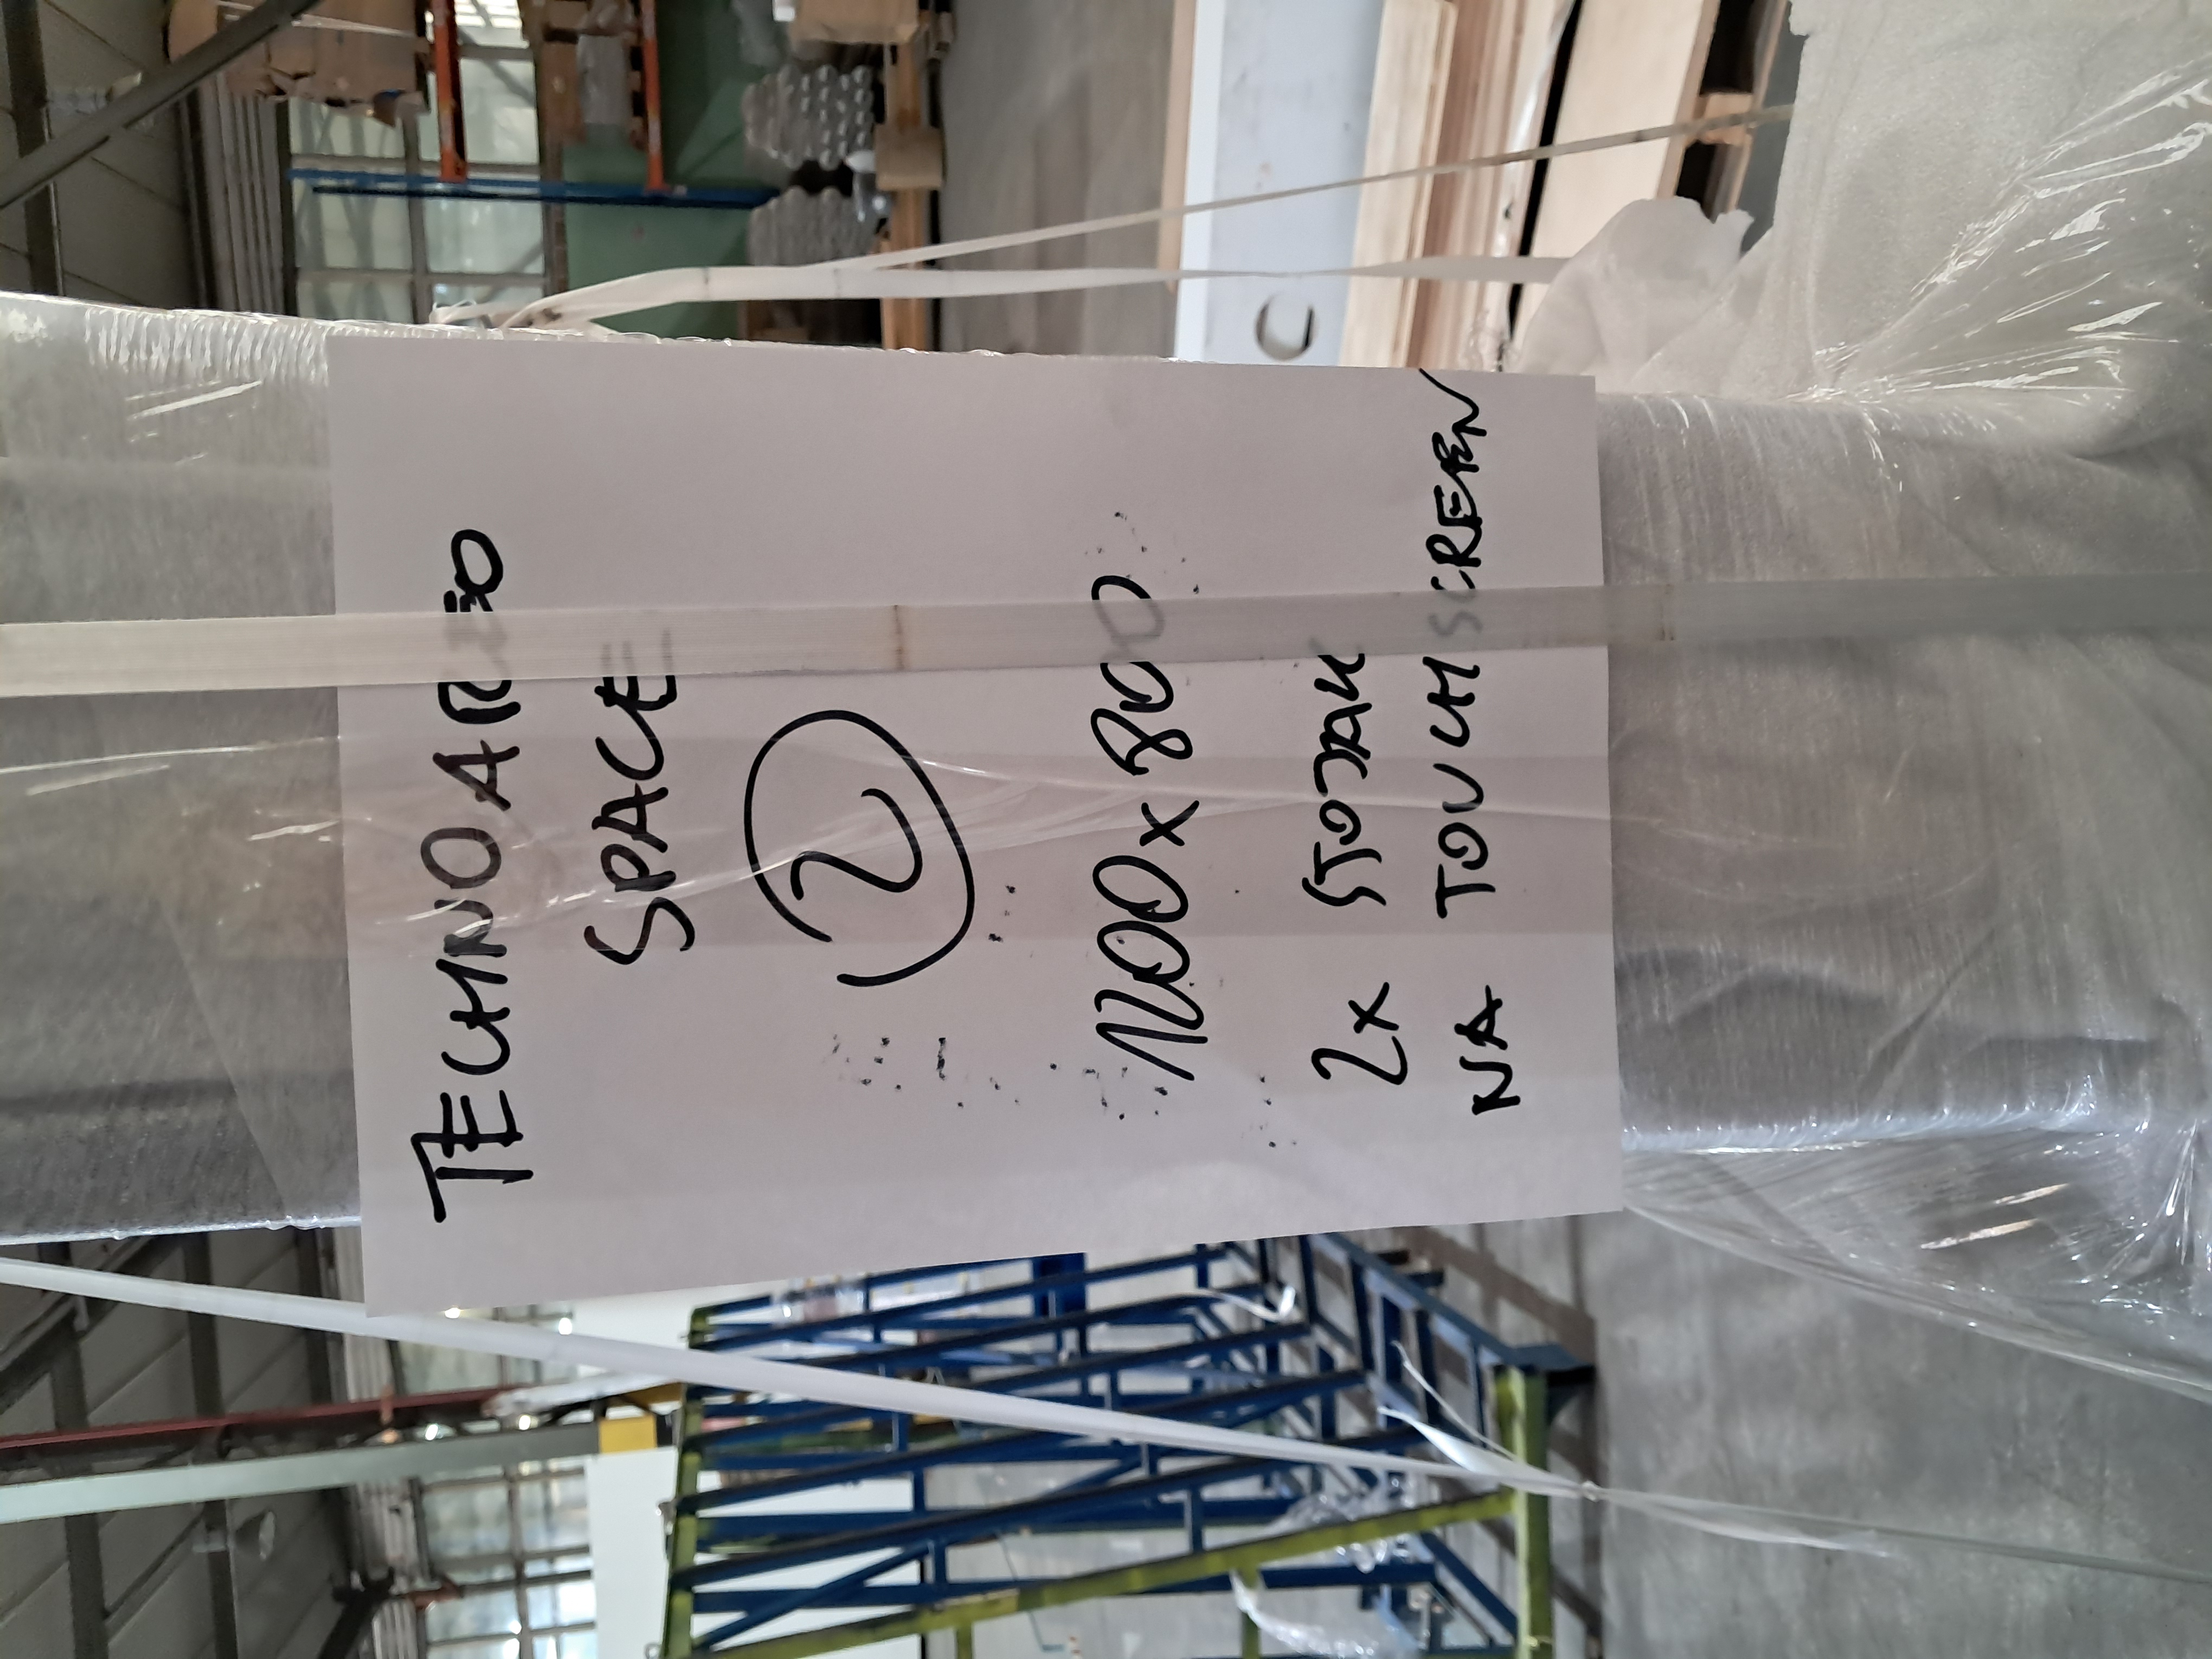 TECHNOAREO
SPACE
2
1200x800
2x STOJAK
NA TOUCHSCREEN